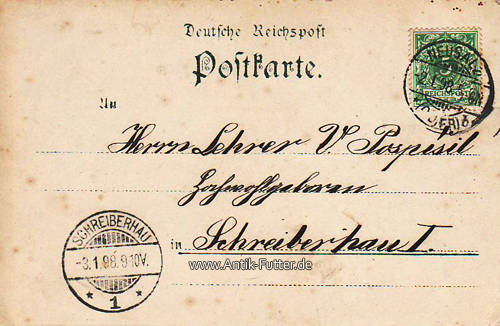 Deutsche Reichspost
Postkarte.
5
REICHSPOST
An
Herrn Lehrer V. Pospesil
Hochwohlgeboren
in Schreiberhau I.
SCHREIBERHAU
-3.1.98.9-10V.
* 1 *
www.Antik-Futter.de